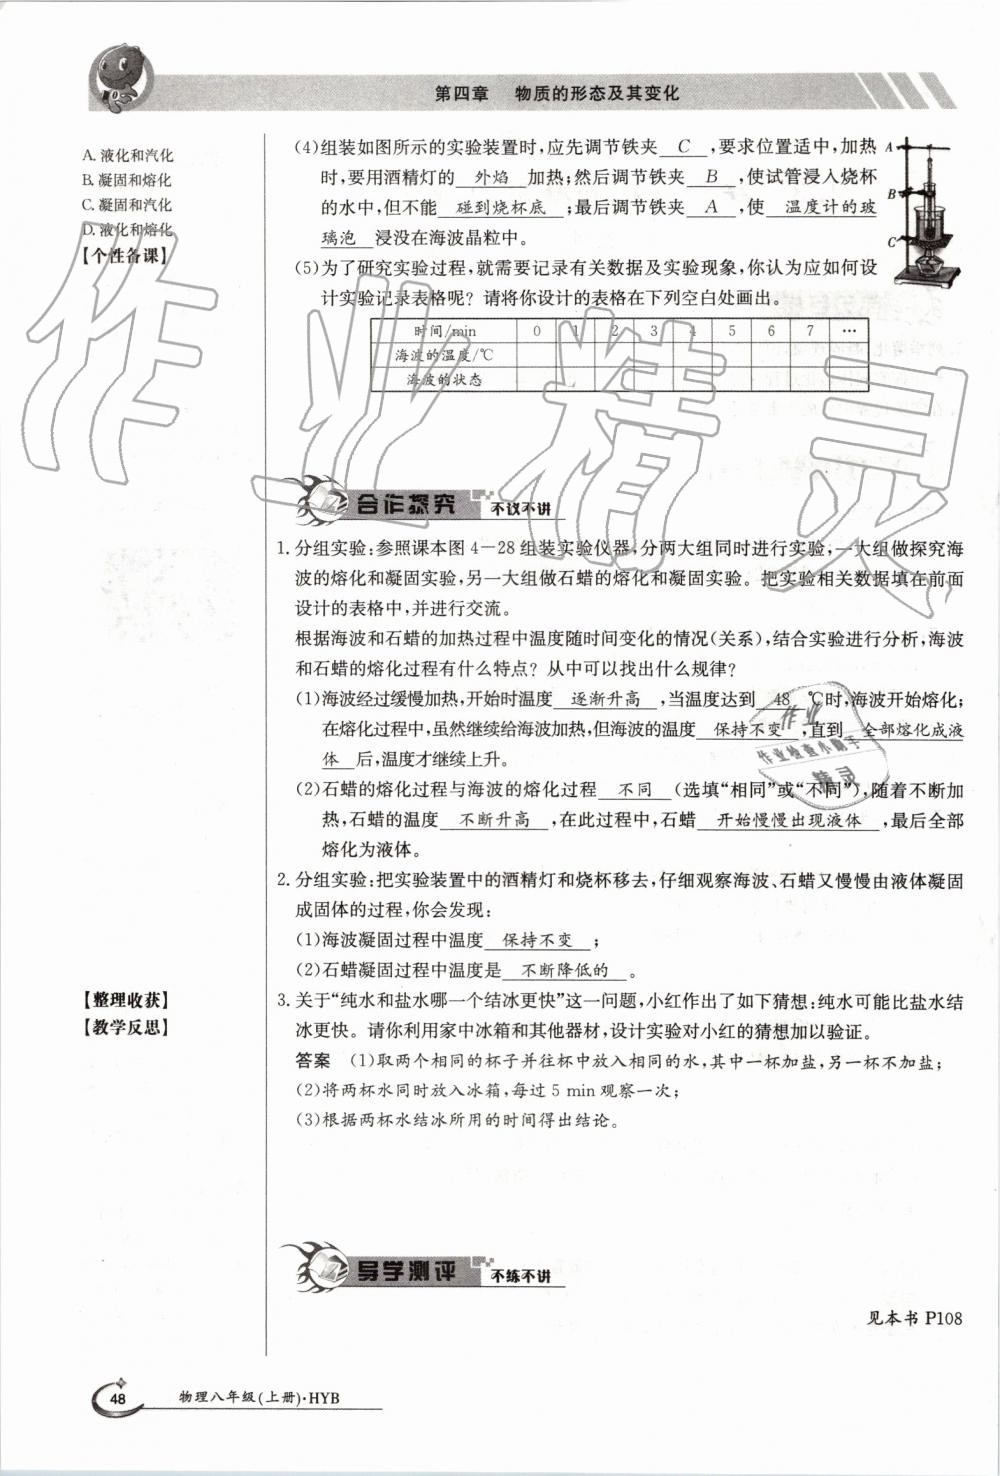 第四章 物质的形态及其变化
A. 液化和汽化
B. 凝固和熔化
C. 凝固和汽化
D. 液化和熔化
【个性备课】
(4)组装如图所示的实验装置时,应先调节铁夹 C ,要求位置适中,加热
时,要用酒精灯的 外焰 加热;然后调节铁夹 B ,使试管浸入烧杯
的水中,但不能 碰到烧杯底 ;最后调节铁夹 A ,使 温度计的玻
璃泡 浸没在海波晶粒中。
A
B
C
(5)为了研究实验过程,就需要记录有关数据及实验现象,你认为应如何设
计实验记录表格呢? 请将你设计的表格在下列空白处画出。
时间/min 0 1 2 3 4 5 6 7 …
海波的温度/℃
海波的状态
合作探究 不议不讲
1. 分组实验:参照课本图 4-28 组装实验仪器,分两大组同时进行实验,一大组做探究海
波的熔化和凝固实验,另一大组做石蜡的熔化和凝固实验。把实验相关数据填在前面
设计的表格中,并进行交流。
根据海波和石蜡的加热过程中温度随时间变化的情况(关系),结合实验进行分析,海波
和石蜡的熔化过程有什么特点? 从中可以找出什么规律?
(1)海波经过缓慢加热,开始时温度 逐渐升高 ,当温度达到 48 ℃时,海波开始熔化;
在熔化过程中,虽然继续给海波加热,但海波的温度 保持不变 ,直到 全部熔化成液
体 后,温度才继续上升。
(2)石蜡的熔化过程与海波的熔化过程 不同 (选填“相同”或“不同”),随着不断加
热,石蜡的温度 不断升高 ,在此过程中,石蜡 开始慢慢出现液体 ,最后全部
熔化为液体。
2. 分组实验:把实验装置中的酒精灯和烧杯移去,仔细观察海波、石蜡又慢慢由液体凝固
成固体的过程,你会发现:
(1)海波凝固过程中温度 保持不变 ;
(2)石蜡凝固过程中温度是 不断降低的 。
【整理收获】
【教学反思】
3. 关于“纯水和盐水哪一个结冰更快”这一问题,小红作出了如下猜想:纯水可能比盐水结
冰更快。请你利用家中冰箱和其他器材,设计实验对小红的猜想加以验证。
答案 (1)取两个相同的杯子并往杯中放入相同的水,其中一杯加盐,另一杯不加盐;
(2)将两杯水同时放入冰箱,每过 5 min 观察一次;
(3)根据两杯水结冰所用的时间得出结论。
导学测评 不练不讲
见本书 P108
48 物理八年级(上册)·HYB
作业精灵
作业
作业检查小助手
精灵